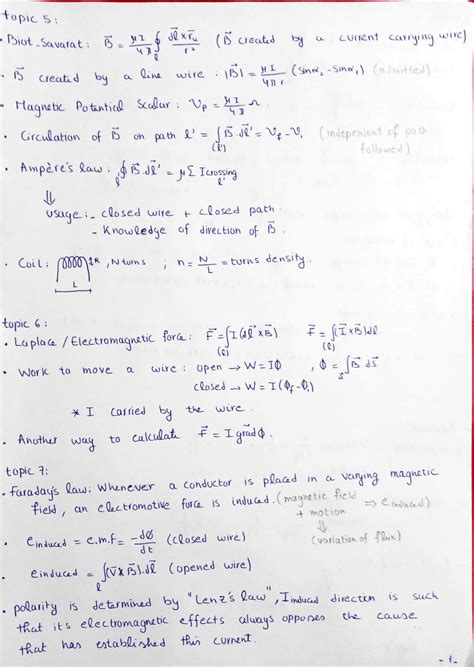 topic 5:
• Biot-Savarat: B⃗ = μI/4π ∮_l dl⃗ × r⃗u / r² (B⃗ created by a current carrying wire)
• B⃗ created by a line wire: |B⃗| = μI/4πr (sinα₂ - sinα₁) (admitted)
• Magnetic Potential Scalar: V_p = μI/4π Ω.
• Circulation of B⃗ on path l' = ∫_(l') B⃗.dl⃗' = V_f - V_i (independent of path
followed)
• Ampère's law: ∮_l' B⃗.dl⃗' = μ Σ I crossing l'
⇓
usage: - closed wire + closed path.
- Knowledge of direction of B⃗.
• Coil: R, N turns ; n = N/L = turns density.
L
topic 6:
• Laplace / Electromagnetic force: F⃗ = ∫_(l) I (dl⃗ × B⃗) F⃗ = ∫_(l) (I⃗ × B⃗) dl
• Work to move a wire: open → W = IΦ , Φ = ∫_S B⃗.dS⃗
closed → W = I (Φf - Φi)
* I carried by the wire.
• Another way to calculate F⃗ = I grad⃗ Φ.
topic 7:
• Faraday's law: Whenever a conductor is placed in a varying magnetic
field, an electromotive force is induced. (magnetic field + motion ⇒ e induced)
⇓
(variation of flux)
• e induced = e.m.f = -dΦ/dt (closed wire)
• e induced = ∫_(l) (V⃗ × B⃗).dl⃗ (opened wire)
• polarity is determined by "Lenz's law", I induced direction is such
that its electromagnetic effects always opposes the cause
that has established this current.
- 1 -